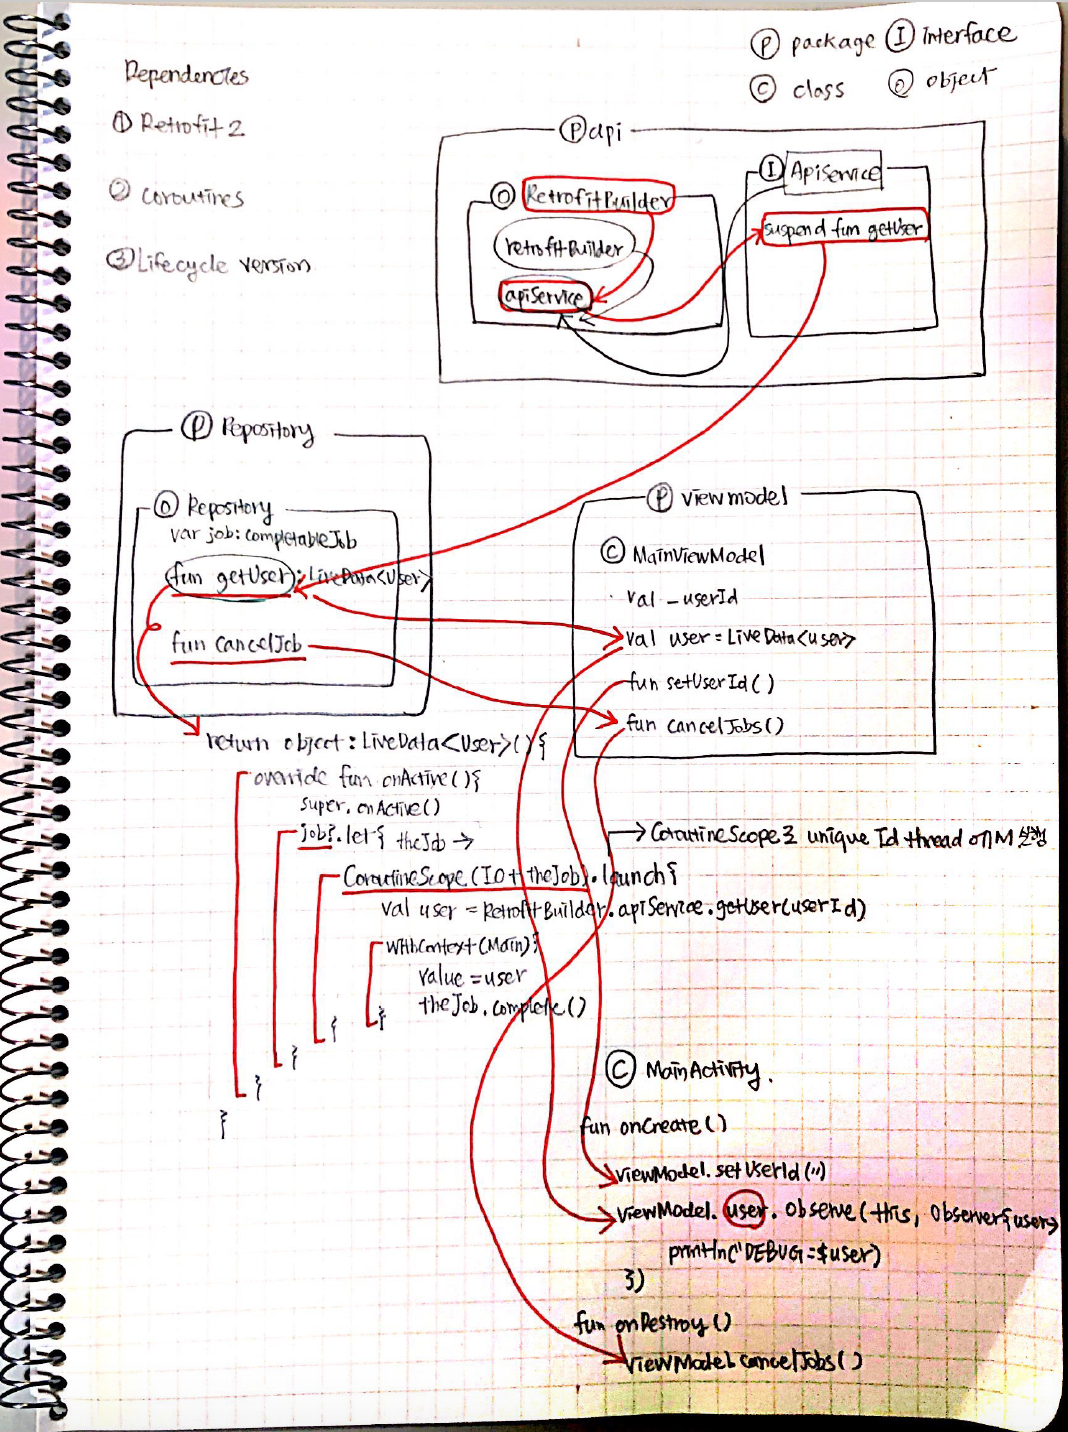 Dependencies
① Retrofit 2
② Coroutines
③ Lifecycle version
Ⓟ package Ⓘ Interface
Ⓒ class Ⓞ object
Ⓟ api
Ⓞ RetrofitBuilder
retrofitBuilder
apiService
Ⓘ ApiService
suspend fun getUser
Ⓟ Repository
Ⓞ Repository
var job: CompletableJob
fun getUser : LiveData<User>
fun cancelJob
Ⓟ viewmodel
Ⓒ MainViewModel
val _userId
val user = LiveData<user>
fun setUserId()
fun cancelJobs()
return object : LiveData<User>() {
override fun onActive(){
super.onActive()
job?.let{ theJob →
→ CoroutineScope로 unique Id thread에서 실행
CoroutineScope(IO + theJob).launch{
val user = RetrofitBuilder.apiService.getUser(userId)
withContext(Main){
value = user
theJob.complete()
}
}
}
}
}
Ⓒ MainActivity.
fun onCreate()
viewModel.setUserId('')
viewModel.user.observe(this, Observer{user>
println("DEBUG=$user)
})
fun onDestroy()
viewModel.cancelJobs()